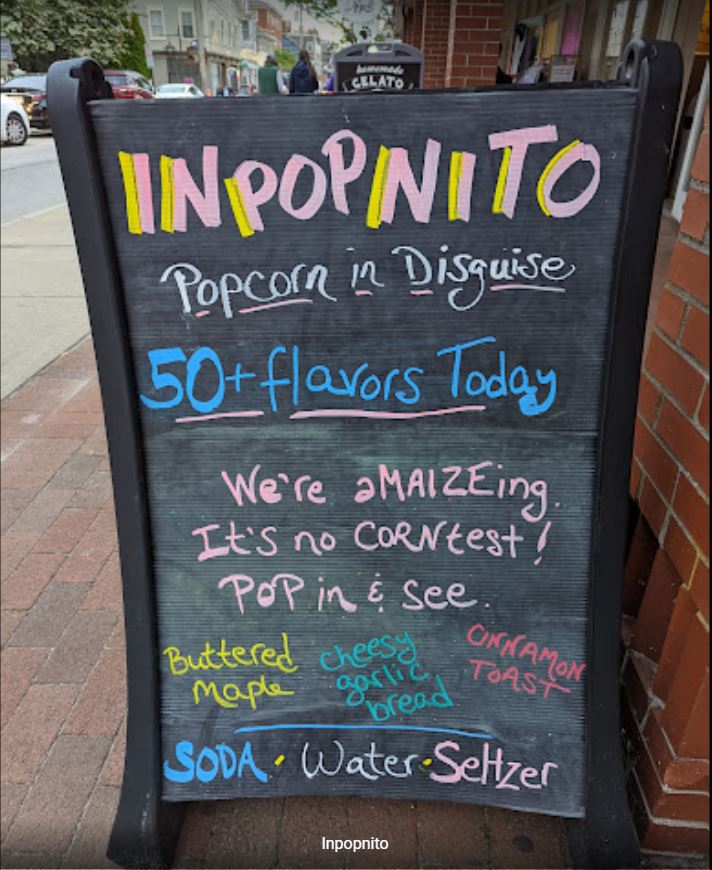 homemade
GELATO
INPOPNITO
Popcorn in Disguise
50+ flavors Today
We're aMAIZEing.
It's no CORNtest!
POP in & see.
Buttered
Maple
cheesy
garlic
bread
CINNAMON
TOAST
SODA · Water · Seltzer
Inpopnito